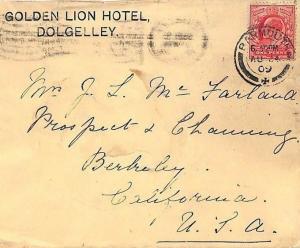 GOLDEN LION HOTEL,
DOLGELLEY.
BARMOUTH
09
Mrs J. L. Mc Farland
Prospect & Channing
Berkeley.
California.
U.S.A.